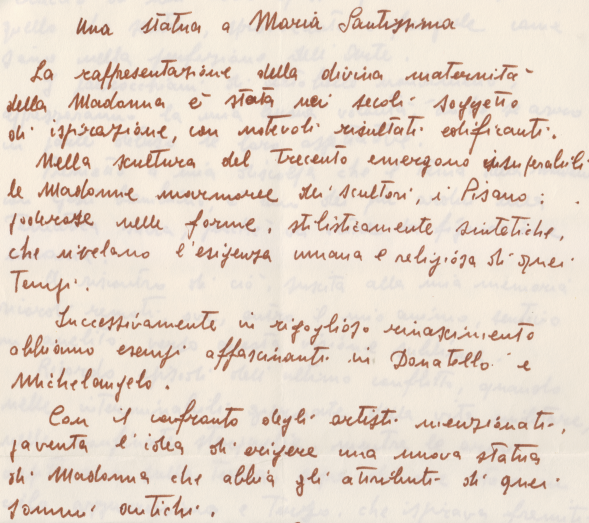 Una statua a Maria Santissima
La raffigurazione della divina maternità
della Madonna è stata nei secoli soggetto
di ispirazione, con notevoli risultati edificanti.
Nella scultura del Trecento emergono insuperabili
le Madonne marmoree dei scultori, i Pisano.
poderose nelle forme, stilisticamente sintetiche,
che rivelano l'esigenza umana e religiosa di quei
Tempi.
Successivamente in rigoglioso rinascimento
abbiamo esempi affascinanti in Donatello e
Michelangelo.
Con il confronto degli artisti menzionati,
paventa l'idea di erigere una nuova statua
di Madonna che abbia gli attributi di quei
sommi antichi.